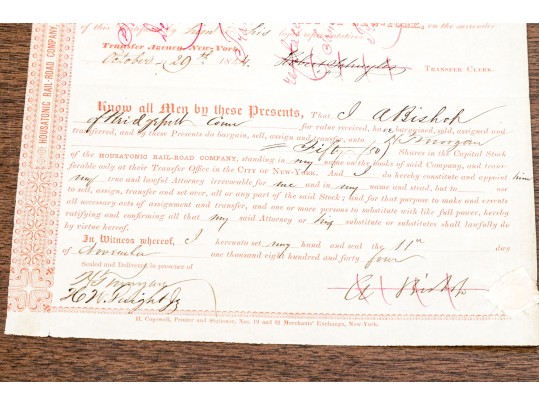 of this
his legal representatives.
Transfer Agency, New-York.
October 29th 1844
TRANSFER CLERK.
HOUSATONIC RAIL-ROAD COMPANY
Know all Men by these Presents, That I A Bishop
of Bridgeport Conn for value received, have bargained, sold, assigned and
transferred, and by these Presents do bargain, sell, assign and transfer, unto
Fifty (50) Shares in the Capital Stock
of the HOUSATONIC RAIL-ROAD COMPANY, standing in my name on the books of said Company, and trans-
ferable only at their Transfer Office in the CITY OF NEW-YORK. And I do hereby constitute and appoint him
my true and lawful Attorney irrevocable for me and in my name and stead, but to use
to sell, assign, transfer and set over, all or any part of the said Stock; and for that purpose to make and execute
all necessary acts of assignment and transfer, and one or more persons to substitute with like full power, hereby
ratifying and confirming all that my said Attorney or his substitute or substitutes shall lawfully do
by virtue hereof.
In Witness whereof, I hereunto set my hand and seal the 11th day
of November one thousand eight hundred and forty four
Sealed and Delivered in presence of
A Bishop
H. Cogswell, Printer and Stationer, Nos. 19 and 21 Merchants' Exchange, New-York.